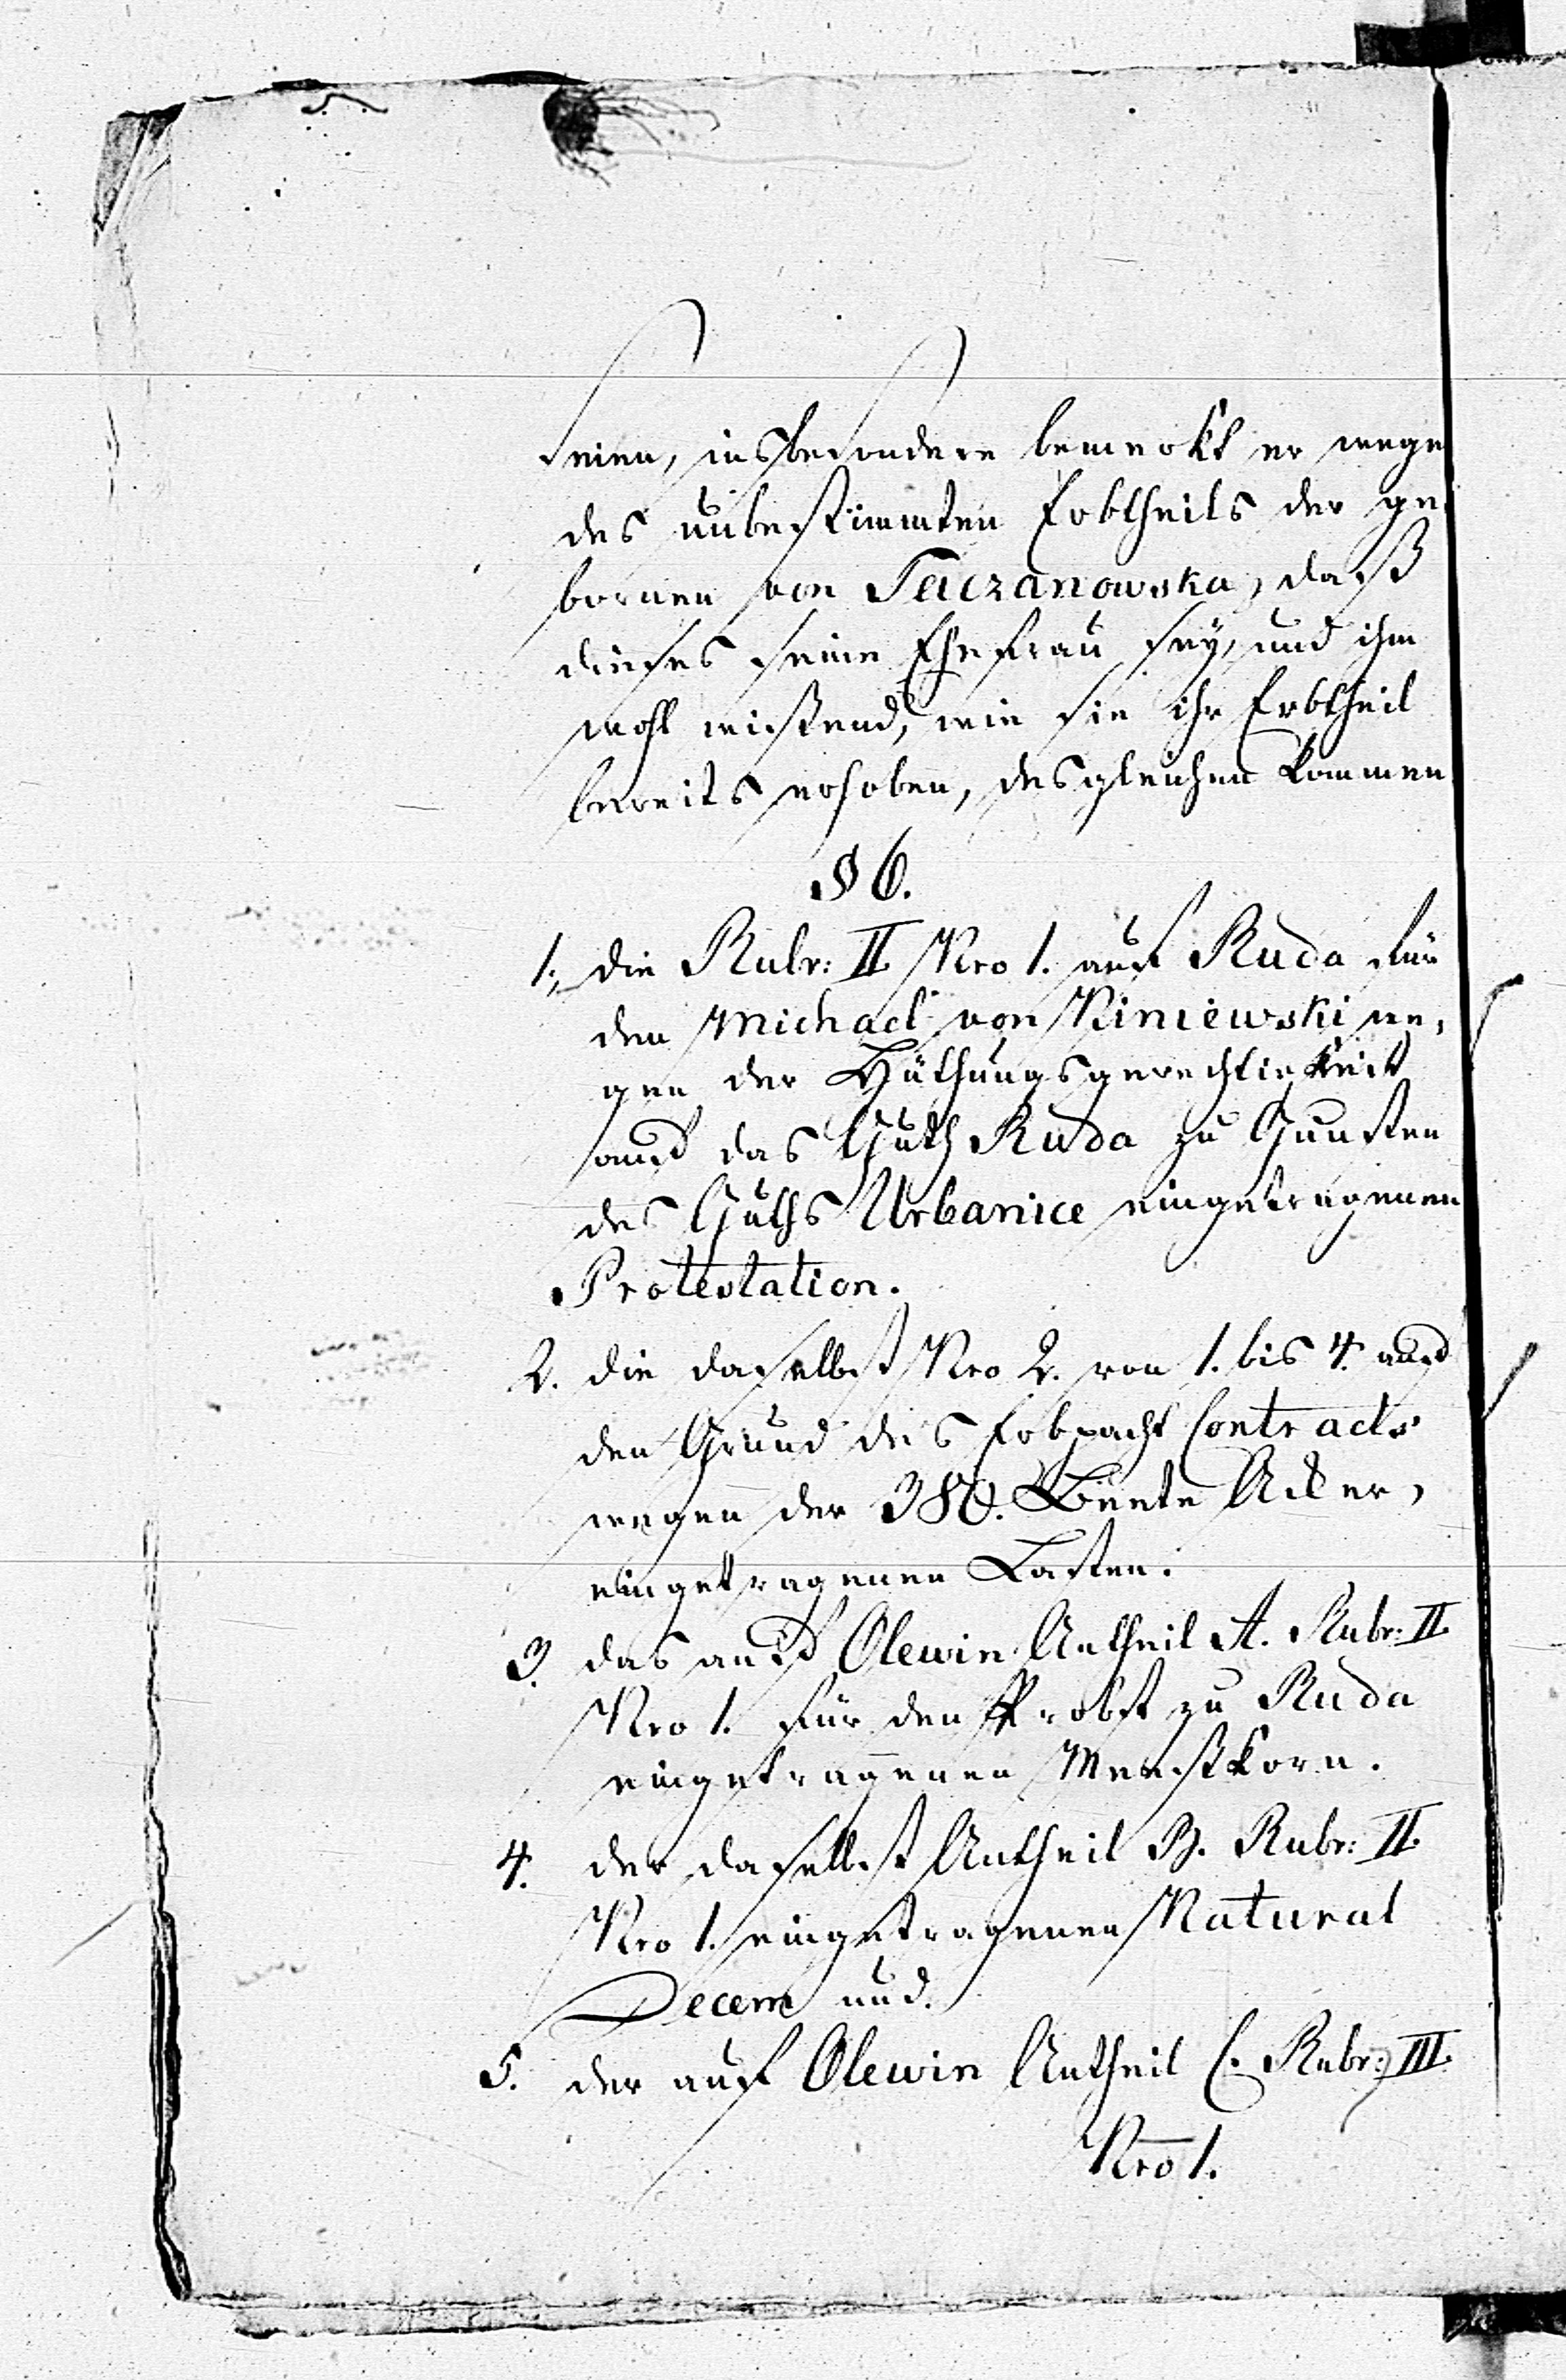 seien, insbesondere bemerkt er wege
des unbestimmten Erbtheils der ge
bornen von Taczanowska, daß
dieses seine Ehefrau sey, und ihm
wohl wißend, wie sie ihr Erbtheil
bereits erhoben, desgleichen kommen
§ 6.
1., die Rubr: II Nro 1. auf Ruda für
den Michael von Kiniewski we,
gen der Hüthungsgerechtigkeit
auf das Guth Ruda zu Gunsten
des Guths Urbanice eingetragenen
Protestation.
2. die daselbst Nro 2. von 1. bis 4. auf
den Grund des Erbpacht Contracts
wegen der Beete Acker,
eingetragenen Lasten.
3. das auf Olewin Antheil A. Rubr: II
Nro 1. für den Probst zu Ruda
eingetragenen Meßkorn.
4. der daselbst Antheil B. Rubr: II.
Nro 1. eingetragenen Natural
Decem und.
5. der auf Olewin Antheil C. Rubr: III.
Nro 1.